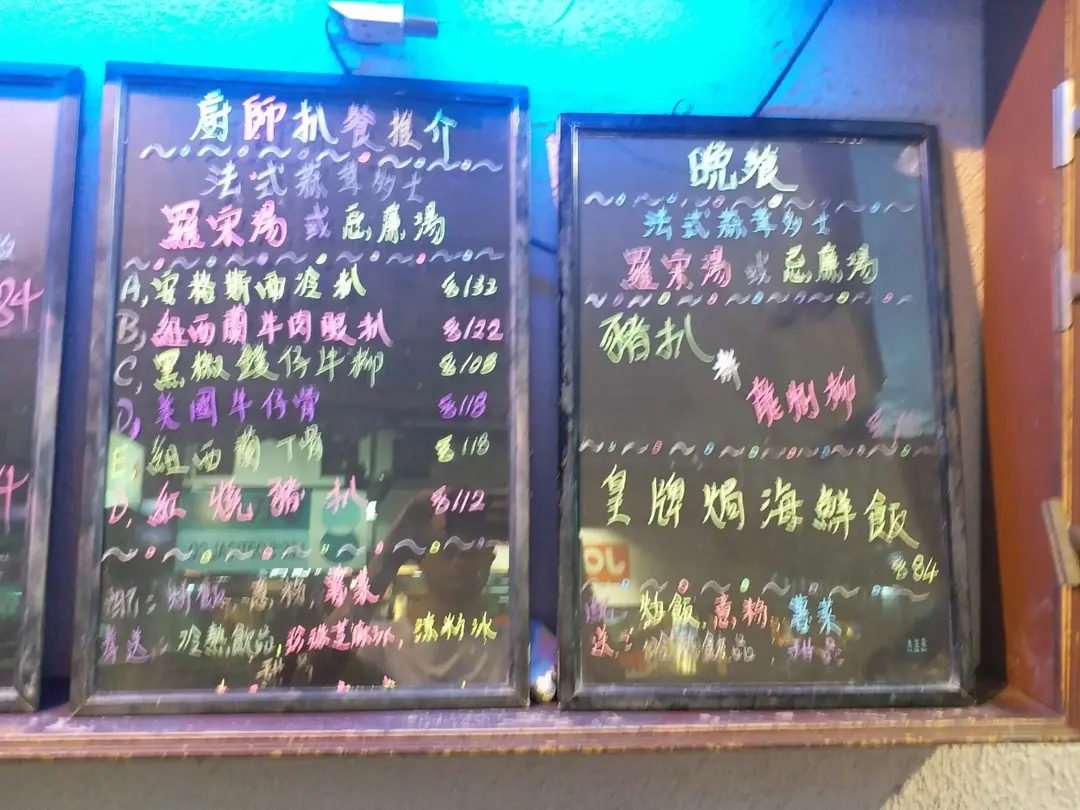 84
4
廚師扒餐推介
法式蒜茸多士
羅宋湯或忌廉湯
A, 安格斯西冷扒 $133
B, 紐西蘭牛肉眼扒 $122
C, 黑椒雙仔牛柳 $108
D, 美國牛仔骨 $118
E, 紐西蘭丁骨 $118
D, 紅燒豬扒 $112
炒飯, 意粉, 薯菜
送: 冷熱飲品, 珍珠芝麻冰, 涼粉冰
晚餐
法式蒜茸多士
羅宋湯或忌廉湯
豬扒
拼
龍脷柳
皇牌焗海鮮飯
$84
炒飯, 意粉, 薯菜
送: 冷熱飲品, 甜品